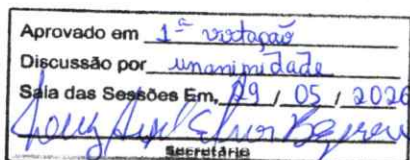 Aprovado em 1ª votação
Discussão por unanimidade
Sala das Sessões Em, 29 / 05 / 2026
Secretário